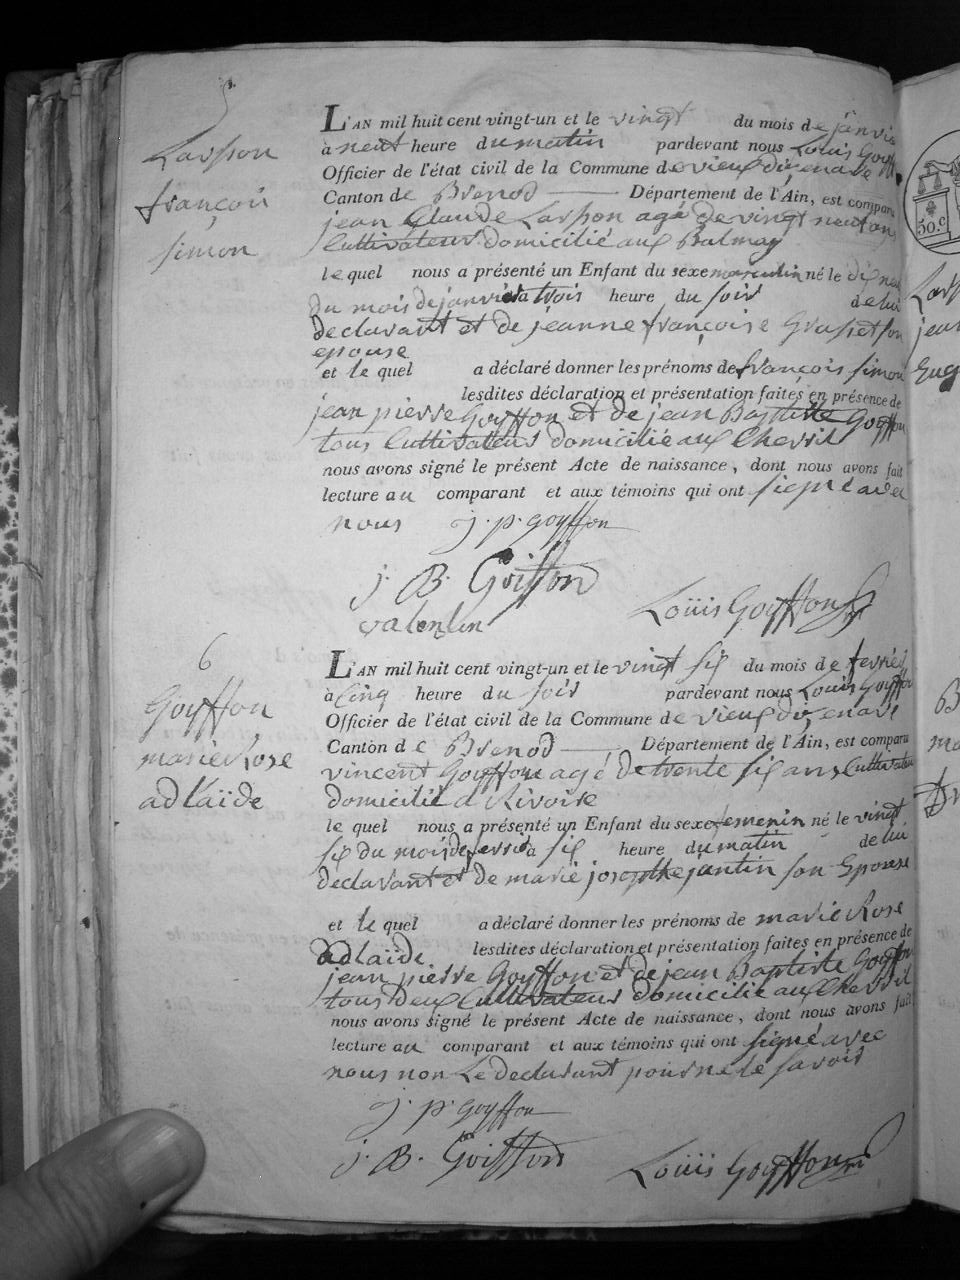 5.
Larsson
françois
simon
L'AN mil huit cent vingt-un et le vingt du mois de janvie
à neuf heure du matin pardevant nous Louis Goyff
Officier de l'état civil de la Commune de vieux dizenave
Canton de Brenod Département de l'Ain, est compar
jean Claude Larsson agé de vingt neuf ans
Cultivateur domicilié aux Balmay
le quel nous a présenté un Enfant du sexe masculin né le dix neu
du mois de janvier à trois heure du soir de lui
declarant et de jeanne françoise son
epouse
et le quel a déclaré donner les prénoms de françois simon
lesdites déclaration et présentation faites en présence de
jean pierre Goyffon et de jean Baptiste Goyffon
tous Cultivateurs domicilié aux Chevril
nous avons signé le présent Acte de naissance, dont nous avons fait
lecture au comparant et aux témoins qui ont signé avec
nous j. p. goyffon
j. B. Goiffon
valentin Loüis Goyffon
6
Goyffon
marie Rose
adlaïde
L'AN mil huit cent vingt-un et le vingt six du mois de fevrier
à Cinq heure du soir pardevant nous Louis Goyffon
Officier de l'état civil de la Commune de vieux dizenave
Canton de Brenod Département de l'Ain, est comparu
vincent Goyffon agé de trente six ans Cultivateur
domicilié a Rivoire
le quel nous a présenté un Enfant du sexe femenin né le vingt
six du mois de fevrier à six heure du matin de lui
declarant et de marie josepthe jantin son Epouse
et le quel a déclaré donner les prénoms de marie Rose
adlaïde lesdites déclaration et présentation faites en présence de
jean pierre Goyffon et de jean Baptiste Goyffon
tous deux Cultivateurs domicilié aux Chevril
nous avons signé le présent Acte de naissance, dont nous avons fait
lecture au comparant et aux témoins qui ont signé avec
nous non le declarant pour ne le savoir
j. p. goyffon
j. B. Goiffon Loüis Goyffon
50.c